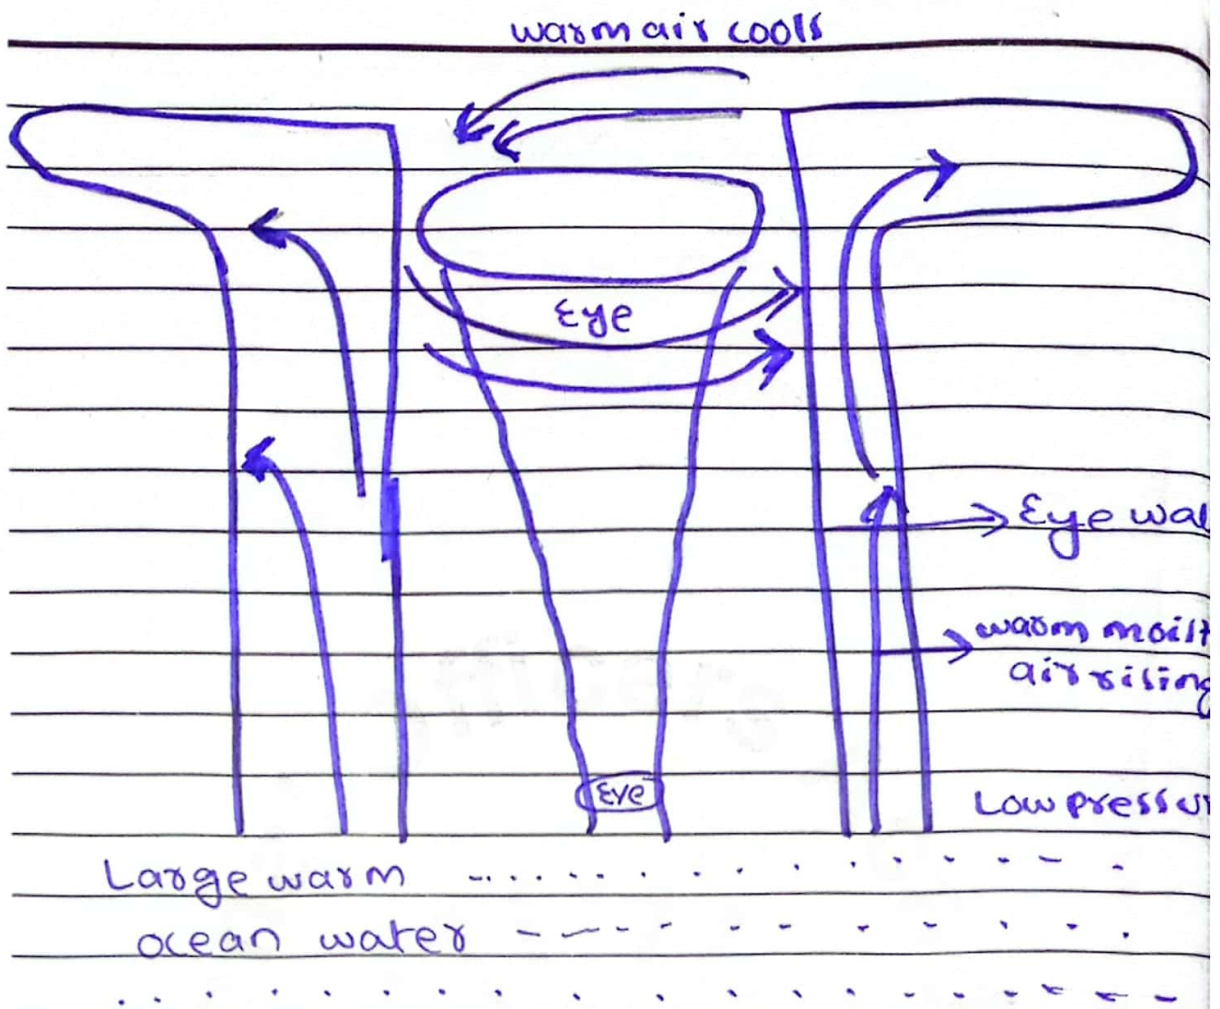 warm air cools
Eye
Eye wal
warm moist
air rising
Eye
Low pressur
Large warm
ocean water